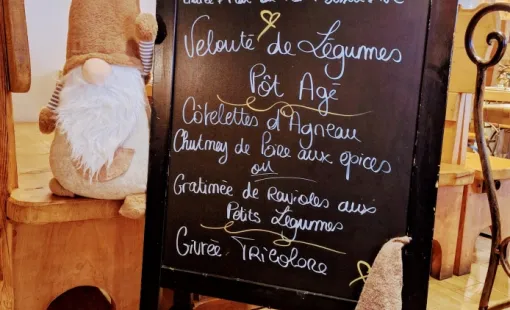 Velouté de Légumes
Pôt Agé
Côtelettes d'Agneau
Chutney de Poire aux épices
ou
Gratinée de Ravioles aux
Petits Légumes
Givrée Tricolore